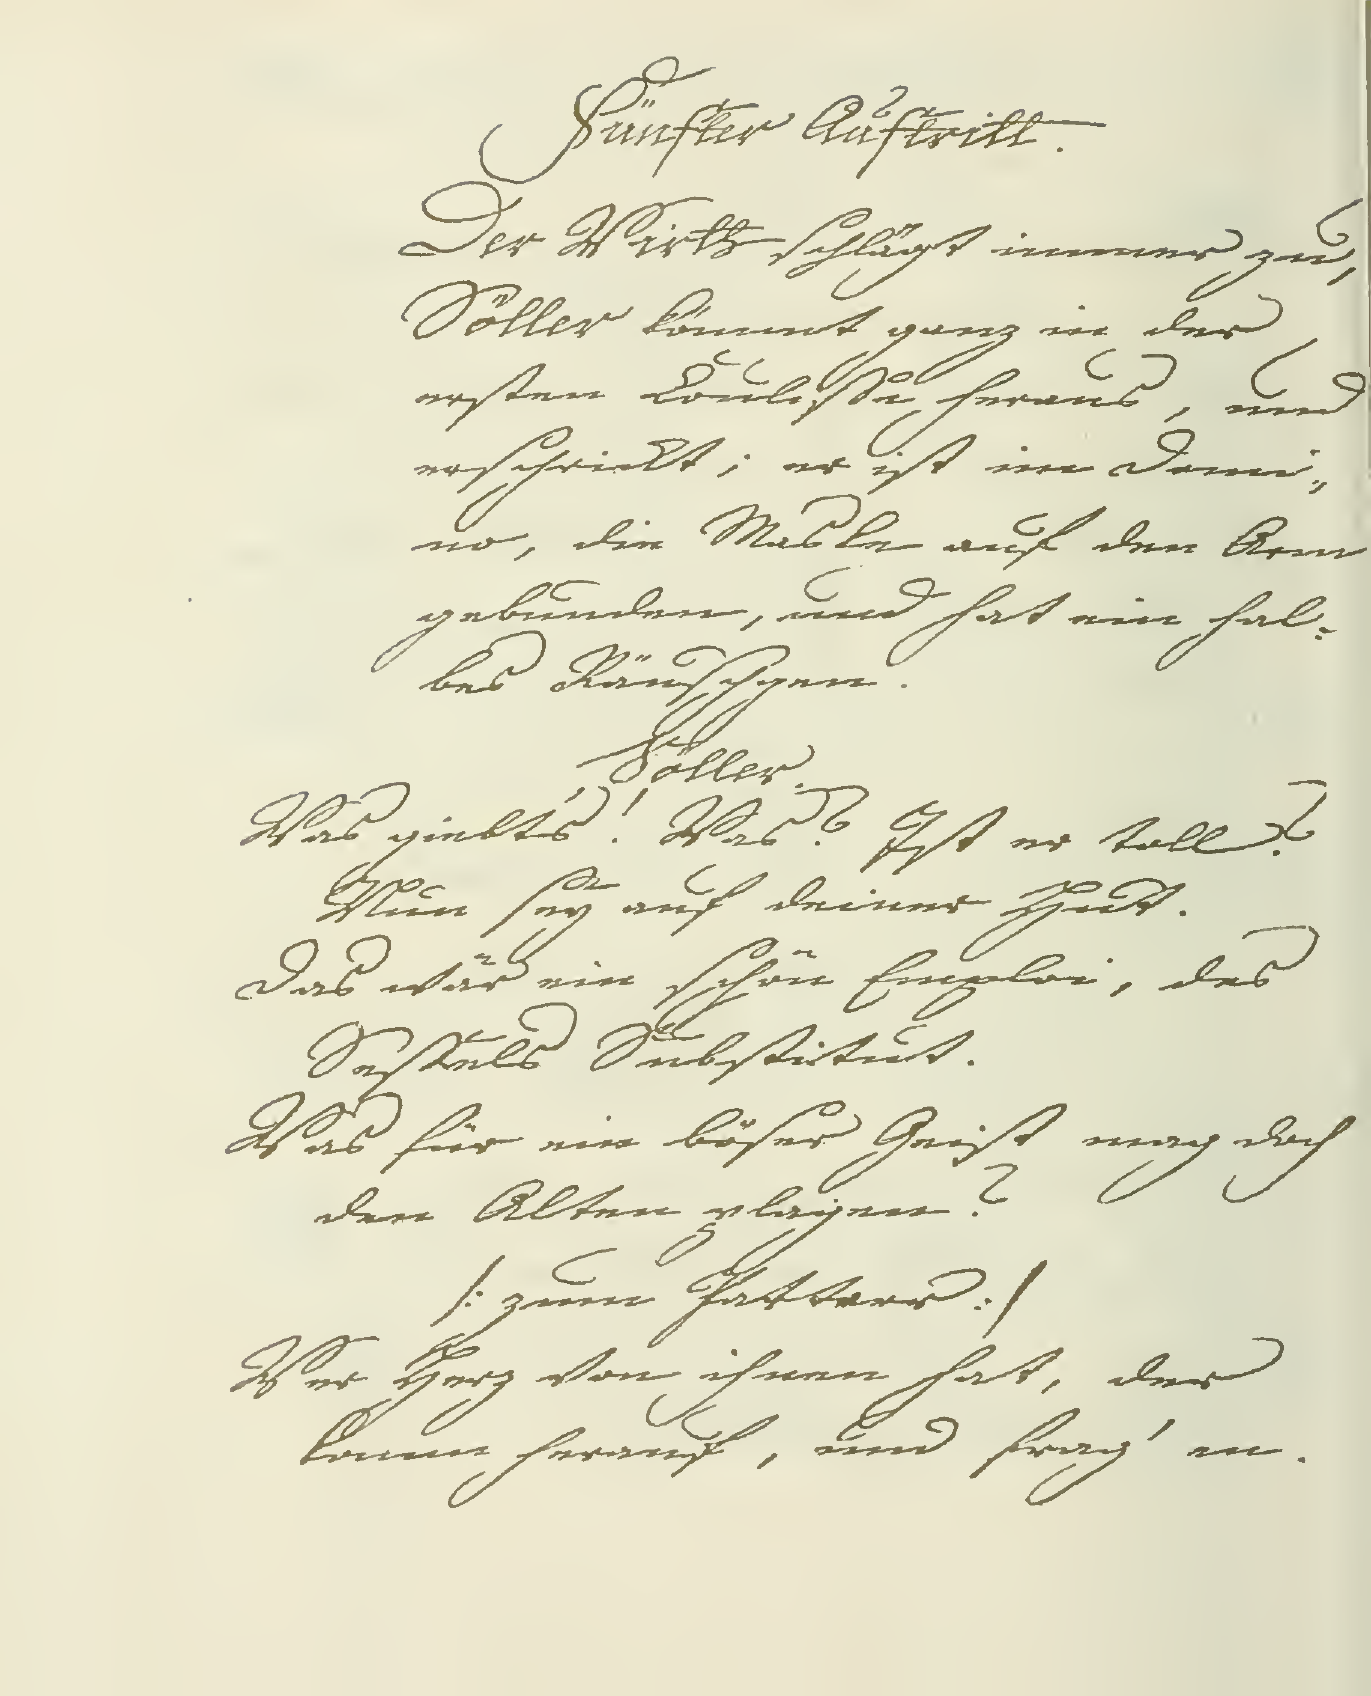 Fünfter Auftritt.
Der Wirth schlägt immer zu,
Söller kömmt ganz in der
ersten Coulisse heraus, und
erschrickt; er ist im Domi„
no, die Maske auf den Arm
gebunden, und hat ein hal„
bes Räuschgen.
Söller.
Was giebts! Was? Ist er toll?
Nun sey auf deiner Hut.
Das wär ein schön Emploi, des
Sessels Substitut.
Was für ein böser Geist mag doch
den Alten plagen?
/: zum Parterr :/
Wer Herz von ihnen hat, der
komm herauf, und frag' en.